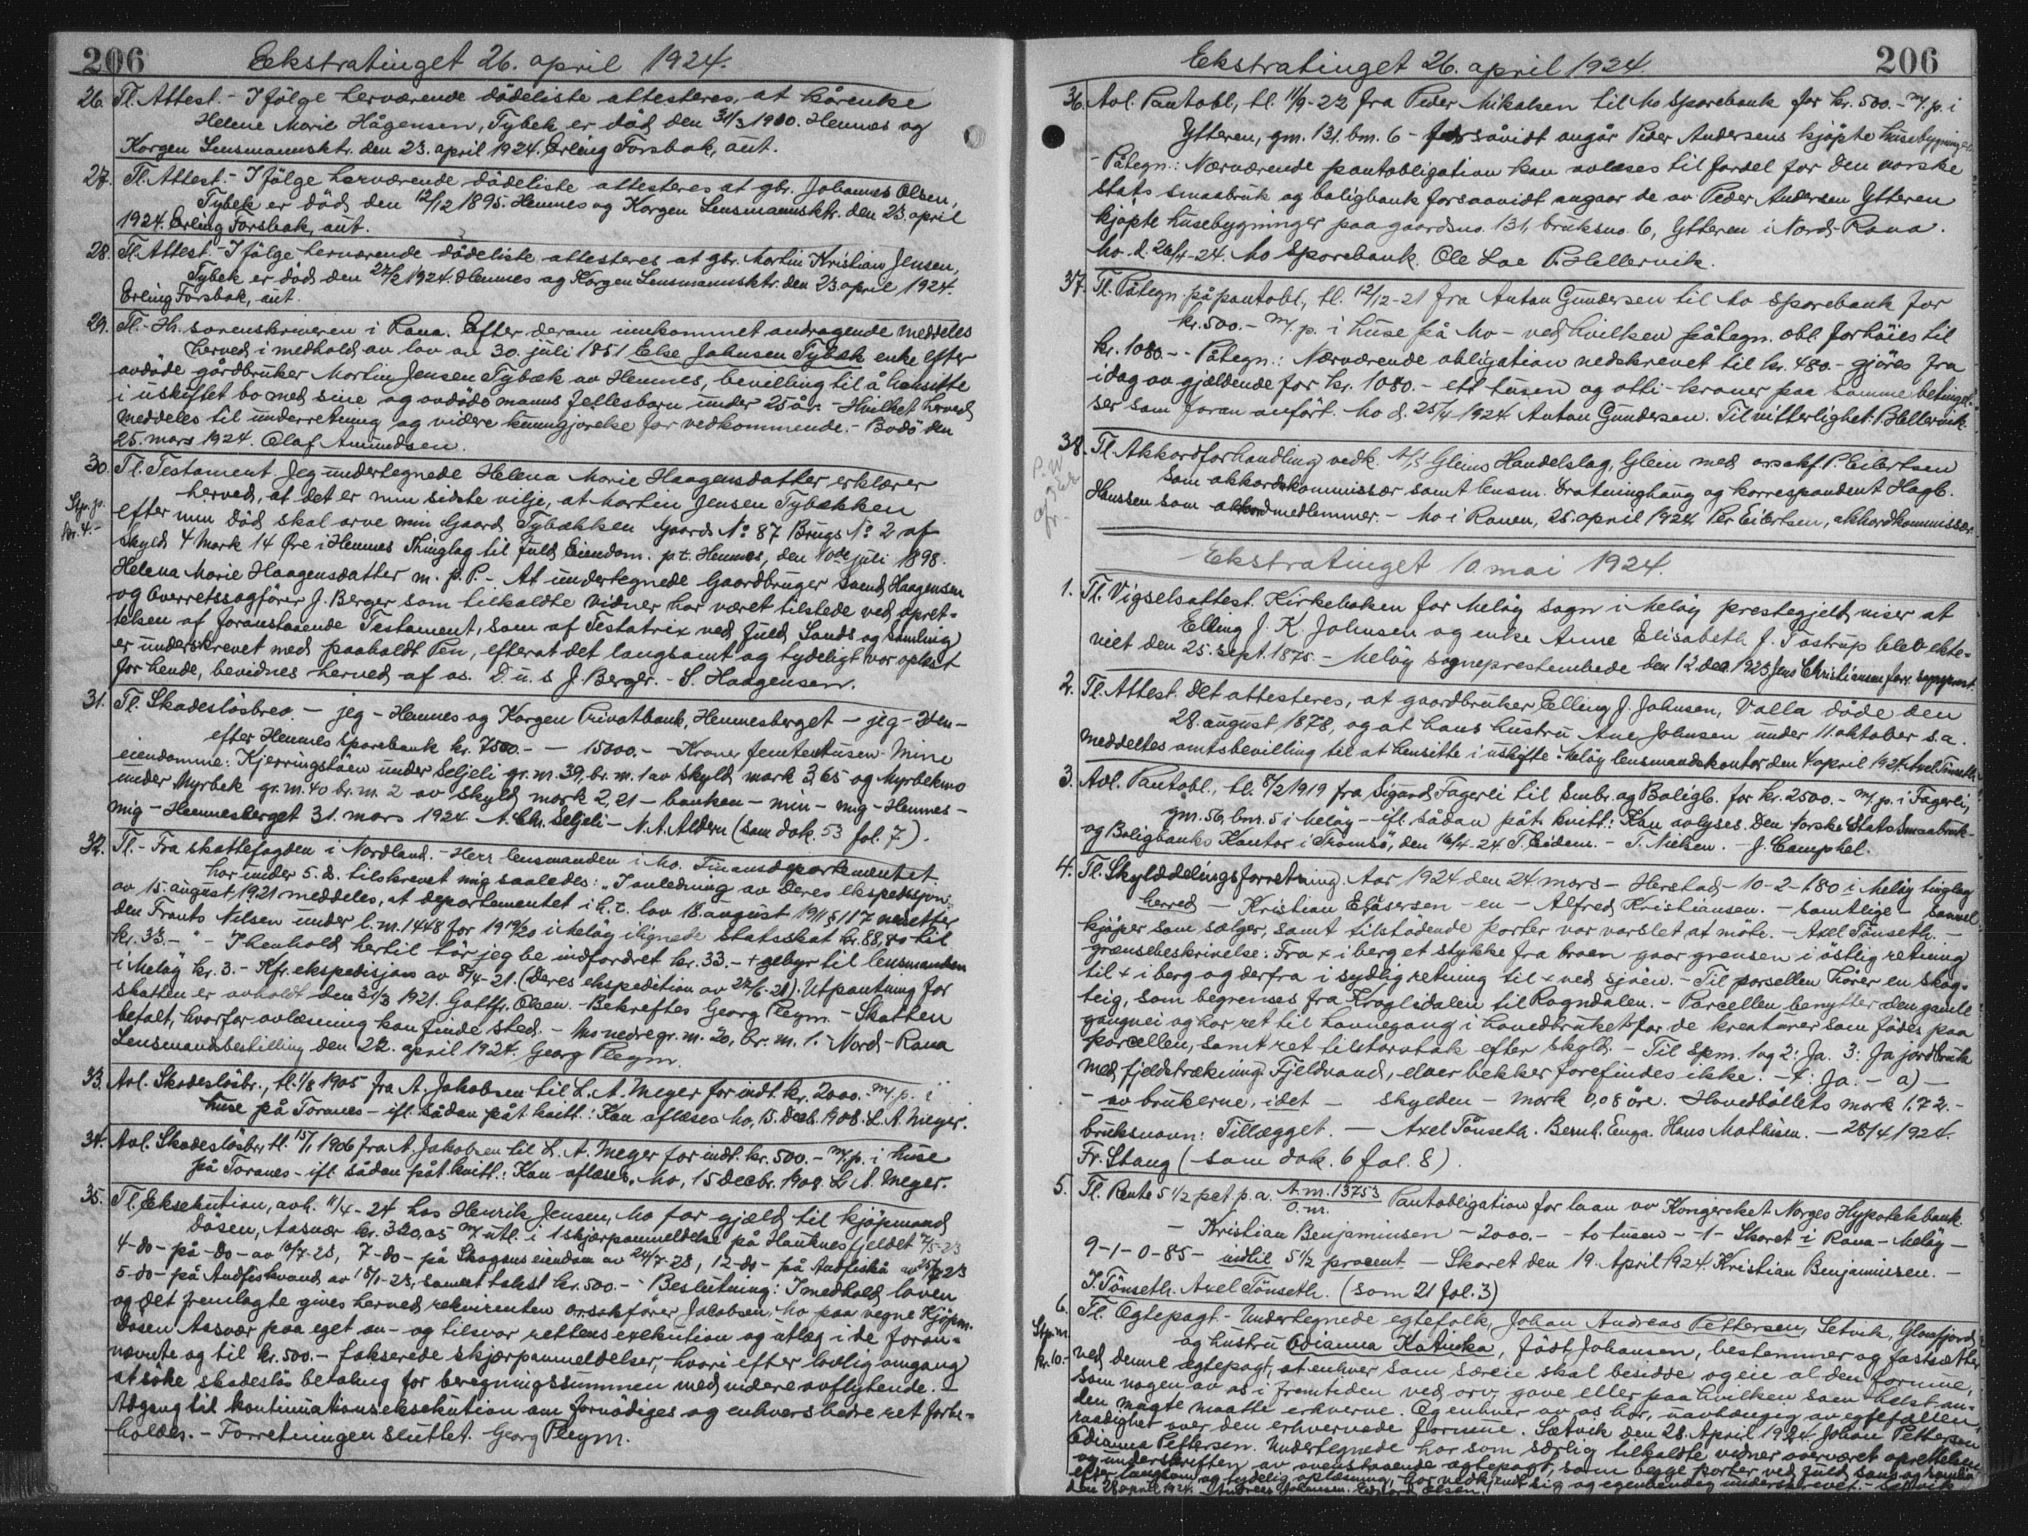 206
Ekstratinget 26. april 1924.
26. Tl. Attest. - I følge herværende dødeliste attesteres, at kårenke
Helene Marie Hågensen, Tybek er død den 31/3 1900. Hennes og
Korgen Lensmannsktr. den 23. april 1924. Erling Forsbak, aut.
27. Tl. Attest. - I følge herværende dødeliste attesteres at gbr. Johannes Olsen,
Tybek er død den 12/12 1895. Hemnes og Korgen Lensmannsktr. den 23. april
1924. Erling Forsbak, aut.
28. Tl. Attest - I følge herværende dødeliste attesteres at gbr. Martin Kristian Jensen,
Tybek er død den 27/2 1924. Hemnes og Korgen Lensmannsktr. den 23. april 1924.
Erling Forsbak, aut.
29. Tl. - Hr. sorenskriveren i Rana. Efter derom innkommet andragende meddeles
herved i medhold av lov av 30. juli 1851 Else Johnsen Tybæk enke efter
avdøde gårdbruker Martin Jensen Tybæk av Hemnes, bevilling til å hensitte
i uskiftet bo med sine og avdøde manns fellesbarn under 25 år. - Hvilket herved
meddeles til underretning og videre kunngjørelse for vedkommende. - Bodø den
25. mars 1924. Olaf Amundsen.
30. Tl. Testament. Jeg undertegnede Helena Marie Haagensdatter erklærer
herved, at det er min sidste vilje, at Martin Jensen Tybækken
Stp. p. kr. 4.-
efter min død skal arve min Gaard Tybækken Gaards No. 87 Brugs No. 2 af
Skyld 4 Mark 14 Øre i Hemnes Thinglag til fuld Eiendom. p.t. Hemnes, den 10de juli 1898.
Helena Marie Haagensdatter m. p. P. - At undertegnede Gaardbruger Svend Haagensen
og Overretssagfører J. Berger som tilkaldte Vidner har været tilstede ved opret-
telsen af foranstaaende Testament, som af Testatrix ved fuld Sands og Samling
er underskrevet med paaholdt Pen, efterat det langsomt og tydeligt var oplæst
for hende, bevidnes herved af os. D.u.s J. Berger. - S. Haagensen.
31. Tl. Skadesløsbrev. - jeg - Hemnes og Korgen Privatbank, Hemnesberget - jeg - den -
efter Hemnes Sparebank kr. 7500.- - 15000.- Kroner femtentusen - Mine
eiendomme: Kjerringtøen under Seljeli gr. m. 39, br. m. 1 av skyld mark 3,65 og Myrbekmo
under Myrbek gr. m. 40 br. m. 2 av skyld mark 2,21 - banken - min - mig - Hemnes -
mig - Hemnesberget 31. mars 1924 A. Chr. Seljeli - N. A. Aldern (som dok. 53 fol. 7).
32. Tl. - Fra skattefogden i Nordland. - Herr lensmanden i Mo. Finansdepartementet
har under 5. ds. tilskrevet mig saaledes: "I anledning av Deres ekspedisjon
av 15. august 1921 meddeles, at departementet i h.t. lov 18. august 1911 § 117 nedsetter
den Frants Nilsen under l.m. 1448 for 1919/20 i Meløy ilignede statsskat kr. 88,80 til
kr. 33.- " - I henhold hertil tør jeg be indfordret kr. 33.- + gebyr til lensmanden
i Meløy kr. 3.- Kfr. ekspedisjon av 8/4-21. (Deres ekspedition av 27/6-21). Utpantning for
skatten er avholdt den 31/3 1921. Gotthf. Olsen. - Bekreftes Georg Pleym - Skatten
betalt, hvorfor avlæsning kan finde sted. - Mo nedre gr. m. 20, br. m. 1. Nord-Rana
Lensmandsbestilling den 22. april 1924. Georg Pleym.
33. Avl. Skadesløsbr., tl. 1/8 1905 fra A. Jakobsen til L. A. Meyer for indt. kr. 2000.- m/p. i
huse på Toranes - ifl. sådan påt. kvitt.: Kan aflæses Mo, 15. Decb. 1908. L. A. Meyer.
34. Avl. Skadesløsbr. tl. 15/1 1906 fra A. Jakobsen til L. A. Meyer for indt. kr. 500.- m/p. i huse
på Toranes - ifl. sådan påt. kvitt.: Kan aflæses. Mo, 15 Decbr. 1908 L. A. Meyer.
35. Tl. Eksekution, avh. 11/4-24 hos Henrik Jensen, Mo for gjæld til kjøpmand
Dosen, Aasvær kr. 320,05 m/utl. i 1 skjærpanmeldelse på Hauknesfjeldet 7/5-23
4-do- på -do- av 10/7-23, 7-do- på Skogseneiendom av 24/7-23, 12-do- på Andfiskå av 25/7-23
5-do- på Andfiskvand av 15/1-23, samlet takst kr. 500.- - Beslutning: I medhold loven
og det fremlagte gives herved rekvirenten orsakfører Jakobsen, Mo paa vegne Kjøpm.
Dosen Aasvær paa eget an- og tilsvar rettens exekution og utlæg i de foran-
nævnte og til kr. 500.- takserede skjærpanmeldelser, hvori efter lovlig omgang
at søke skadesløs betaling for beregningssummen med videre avflytende. -
Adgang til kontinuationseksekution om fornødiges og enhvers bedre ret forbe-
holdes. - Forretningen sluttet. Georg Pleym.
206
Ekstratinget 26. april 1924.
36. Avl. Pantobl, tl. 11/9-22 fra Peder Mikalsen til Mo Sparebank for kr. 500.- m/p. i
Ytteren, gm. 131, bm. 6 - forsåvidt angår Peder Andersens kjøpte husebygninger.
- Påtegn.: Nærværende pantobligation kan avlæses til fordel for Den norske
stats smaabruk og boligbank forsaavidt angaar de av Peder Andersen Ytteren
kjøpte husebygninger paa gaardsno. 131, bruksno. 6, Ytteren i Nord-Rana.
Mo d. 26/4-24. Mo Sparebank. Ole Loe P. Hellervik.
37. Tl. Påtegn på pantobl., tl. 12/12-21 fra Anton Gundersen til Mo Sparebank for
kr. 500.- m/p. i huse på Mo - ved hvilken påtegn. obl. forhøies til
kr. 1080.- - Påtegn.: Nærværende obligation nedskrevet til kr. 480.- gjøres fra
idag av gjældende for kr. 1080.- ett tusen og otti - kroner paa samme betingel-
ser som foran anført. Mo d. 25/4 1924 Anton Gundersen. Til vitterlighet: P. Hellervik.
38. Tl. Akkordforhandling vedk. A/S Gleins Handelslag, Glein med orsakf. P. Eilertsen
som akkordskommissær samt lensm. Dratninghaug og korrespondent Hagb.
Hanssen som akkordmedlemmer. - Mo i Ranen, 25. april 1924 Per Eilertsen, akkordkommissær.
Ekstratinget 10. mai 1924.
1. Tl. Vigselsattest. Kirkeboken for Meløy sogn i Meløy prestegjeld viser at
Elling J. K. Johnsen og enke Anne Elisabeth J. Tostrup blev ekte-
viet den 25. sept. 1875. - Meløy sogneprestembede den 12. des. 1923 Jens Christiansen forr. sogneprest.
2. Tl. Attest. Det attesteres, at gaardbruker Elling J. Johnsen, Valla døde den
28. august 1878, og at hans hustru Ane Johnsen under 11. oktober s.a.
meddeltes amtsbevilling til at hensitte i uskifte. Meløy lensmandskontor den 4 april 1924. Axel Tønseth.
3. Avl. Pantobl., tl. 8/2 1919 fra Sigurd Fagerli til Smbr. og Boligb. for kr. 2500.- m/p. i Fagerli,
gm. 56, bm. 5 i Meløy - ifl. sådan påt. kvitt.: Kan avlyses. Den Norske Stats Smaabruk-
og Boligbanks Kontor i Tromsø, den 16/4-24 T. Eidem. - T. Nielsen. - J. Camphel.
4. Tl. Skylddelingsforretning. Aar 1924 den 24 mars - Herstad - 10-2-1.80 i Meløy tinglag
herred - Kristian Eliasersen - en - Alfred Kristiansen. - samtlige - samvel
kjøper som sælger, samt tilstødende parter var varslet at møte. - Axel Tønseth. -
grænsebeskrivelse: Fra x i berg et stykke fra broen gaar grensen i østlig retning
til x i berg og derfra i sydlig retning til x ved sjøen. - Til parsellen hører en skog-
teig, som begrenses fra Kroglidalen til Rogndalen. - Parcellen benytter den gamle
gangvei og har ret til havnegang i hovedbruket for de kreaturer som fødes paa
parcellen, samt ret tilstoratak efter skyld. - Til Spm. 1 og 2: Ja. 3: Ja jordbruk
med fjeldstrækning. Fjeldvand, elver bekker forefindes ikke. - 4: Ja. - a) -
- av brukerne, idet - skylden - mark 0,08 øre. Hovedbøllets mark 1.72.-
bruksnavn: Tillægget. - Axel Tønseth. Bernh. Enga. Hans Mathisen. - 28/4 1924.
Fr. Stang (som dok. 6 fol. 8).
5. Tl. Rente 5 1/2 pct. p. a. A.m. 13753 O.m. Pantobligation for laan av Kongeriket Norges Hypotekbank
- Kristian Benjaminsen - 2000.- - to tusen - 1 - Skaret i Rana - Meløy -
9-1-0-85 - indtil 5 1/2 procent - Skaret den 19. April 1924. Kristian Benjaminsen. -
J. Tønseth. Axel Tønseth. (som 21 fol. 3)
6. Tl. Egtepagt. - Undertegnede egtefolk, Johan Andreas Pettersen, Setvik, Glomfjord
Stp. m. kr. 10.-
og hustru Odianna Katinka, født Johansen, bestemmer og fastsætter
ved denne egtepagt, at enhver som særeie skal besidde og eie al den formue,
som nogen av os i fremtiden ved arv, gave eller paa hvilken som helst an-
den maate maatte erhverve. Og enhver av os har, uavhængig av egtefællen,
raadighet over den erhvervede formue. Sætvik den 28. April 1924 Johan Pettersen
Odianna Pettersen. Undertegnede har som særlig tilkaldte vidner overværet oprettelsen
og underskriften av ovenstaaende egtepagt, som begge parter ved fuld sans og samling
efter langsom og tydelig oplæsning, har vedkjendt sig og egenhendig underskrevet. - Sætvik
den 28 april 1924. Andreas Johansen. Edvard Olsen.